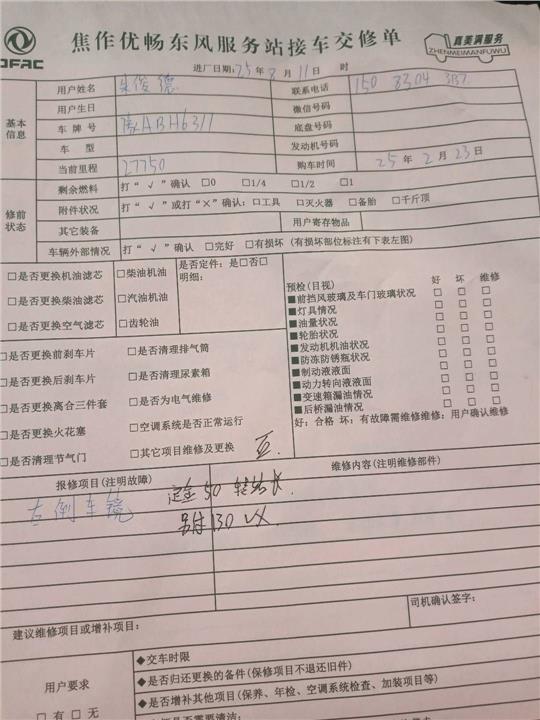 DFAC
焦作优畅东风服务站接车交修单
嘉美满服务
ZHENMEIMANFUWU
进厂日期:25年8月11日 时
基本信息
用户姓名 朱俊德 联系电话 150 8304
用户生日 微信号码
车牌号 豫ABH6311 底盘号码
车型 发动机号码
当前里程 27750 购车时间 25年2月23日
修前状态
剩余燃料 打“√”确认 □0 □1/4 □1/2 □1
附件状况 打“√”或打“×”确认:□工具 □灭火器 □备胎 □千斤顶
其它装备 用户寄存物品
车辆外部情况 打“√”确认 □完好 □有损坏 (有损坏部位标注有下表左图)
□是否更换机油滤芯 □柴油机油 是否定件:是□否□
明细:
□是否更换柴油滤芯 □汽油机油
□是否更换空气滤芯 □齿轮油
预检(目视) 好 坏 维修
■前挡风玻璃及车门玻璃状况 □ □ □
■灯具情况 □ □ □
■油量状况 □ □ □
■轮胎状况 □ □ □
■发动机机油状况 □ □ □
■防冻防锈瓶状况 □ □ □
■制动液液面 □ □ □
■动力转向液液面 □ □ □
■变速箱漏油情况 □ □ □
■后桥漏油情况 □ □ □
好:合格 坏:有故障需维修维修:用户确认维修
□是否更换前刹车片 □是否清理排气筒
□是否更换后刹车片 □是否清理尿素箱
□是否更换离合三件套 □是否为电气维修
□是否更换火花塞 □空调系统是否正常运行
□是否清理节气门 □其它项目维修及更换
报修项目(注明故障) 维修内容(注明维修部件)
左倒车镜
定金50 转站长
另付130 VX
建议维修项目或增补项目: 司机确认签字:
用户要求
□有 □无
◆交车时限
◆是否归还更换的备件(保修项目不退还旧件)
◆是否增补其他项目(保养、年检、空调系统检查、加装项目等)